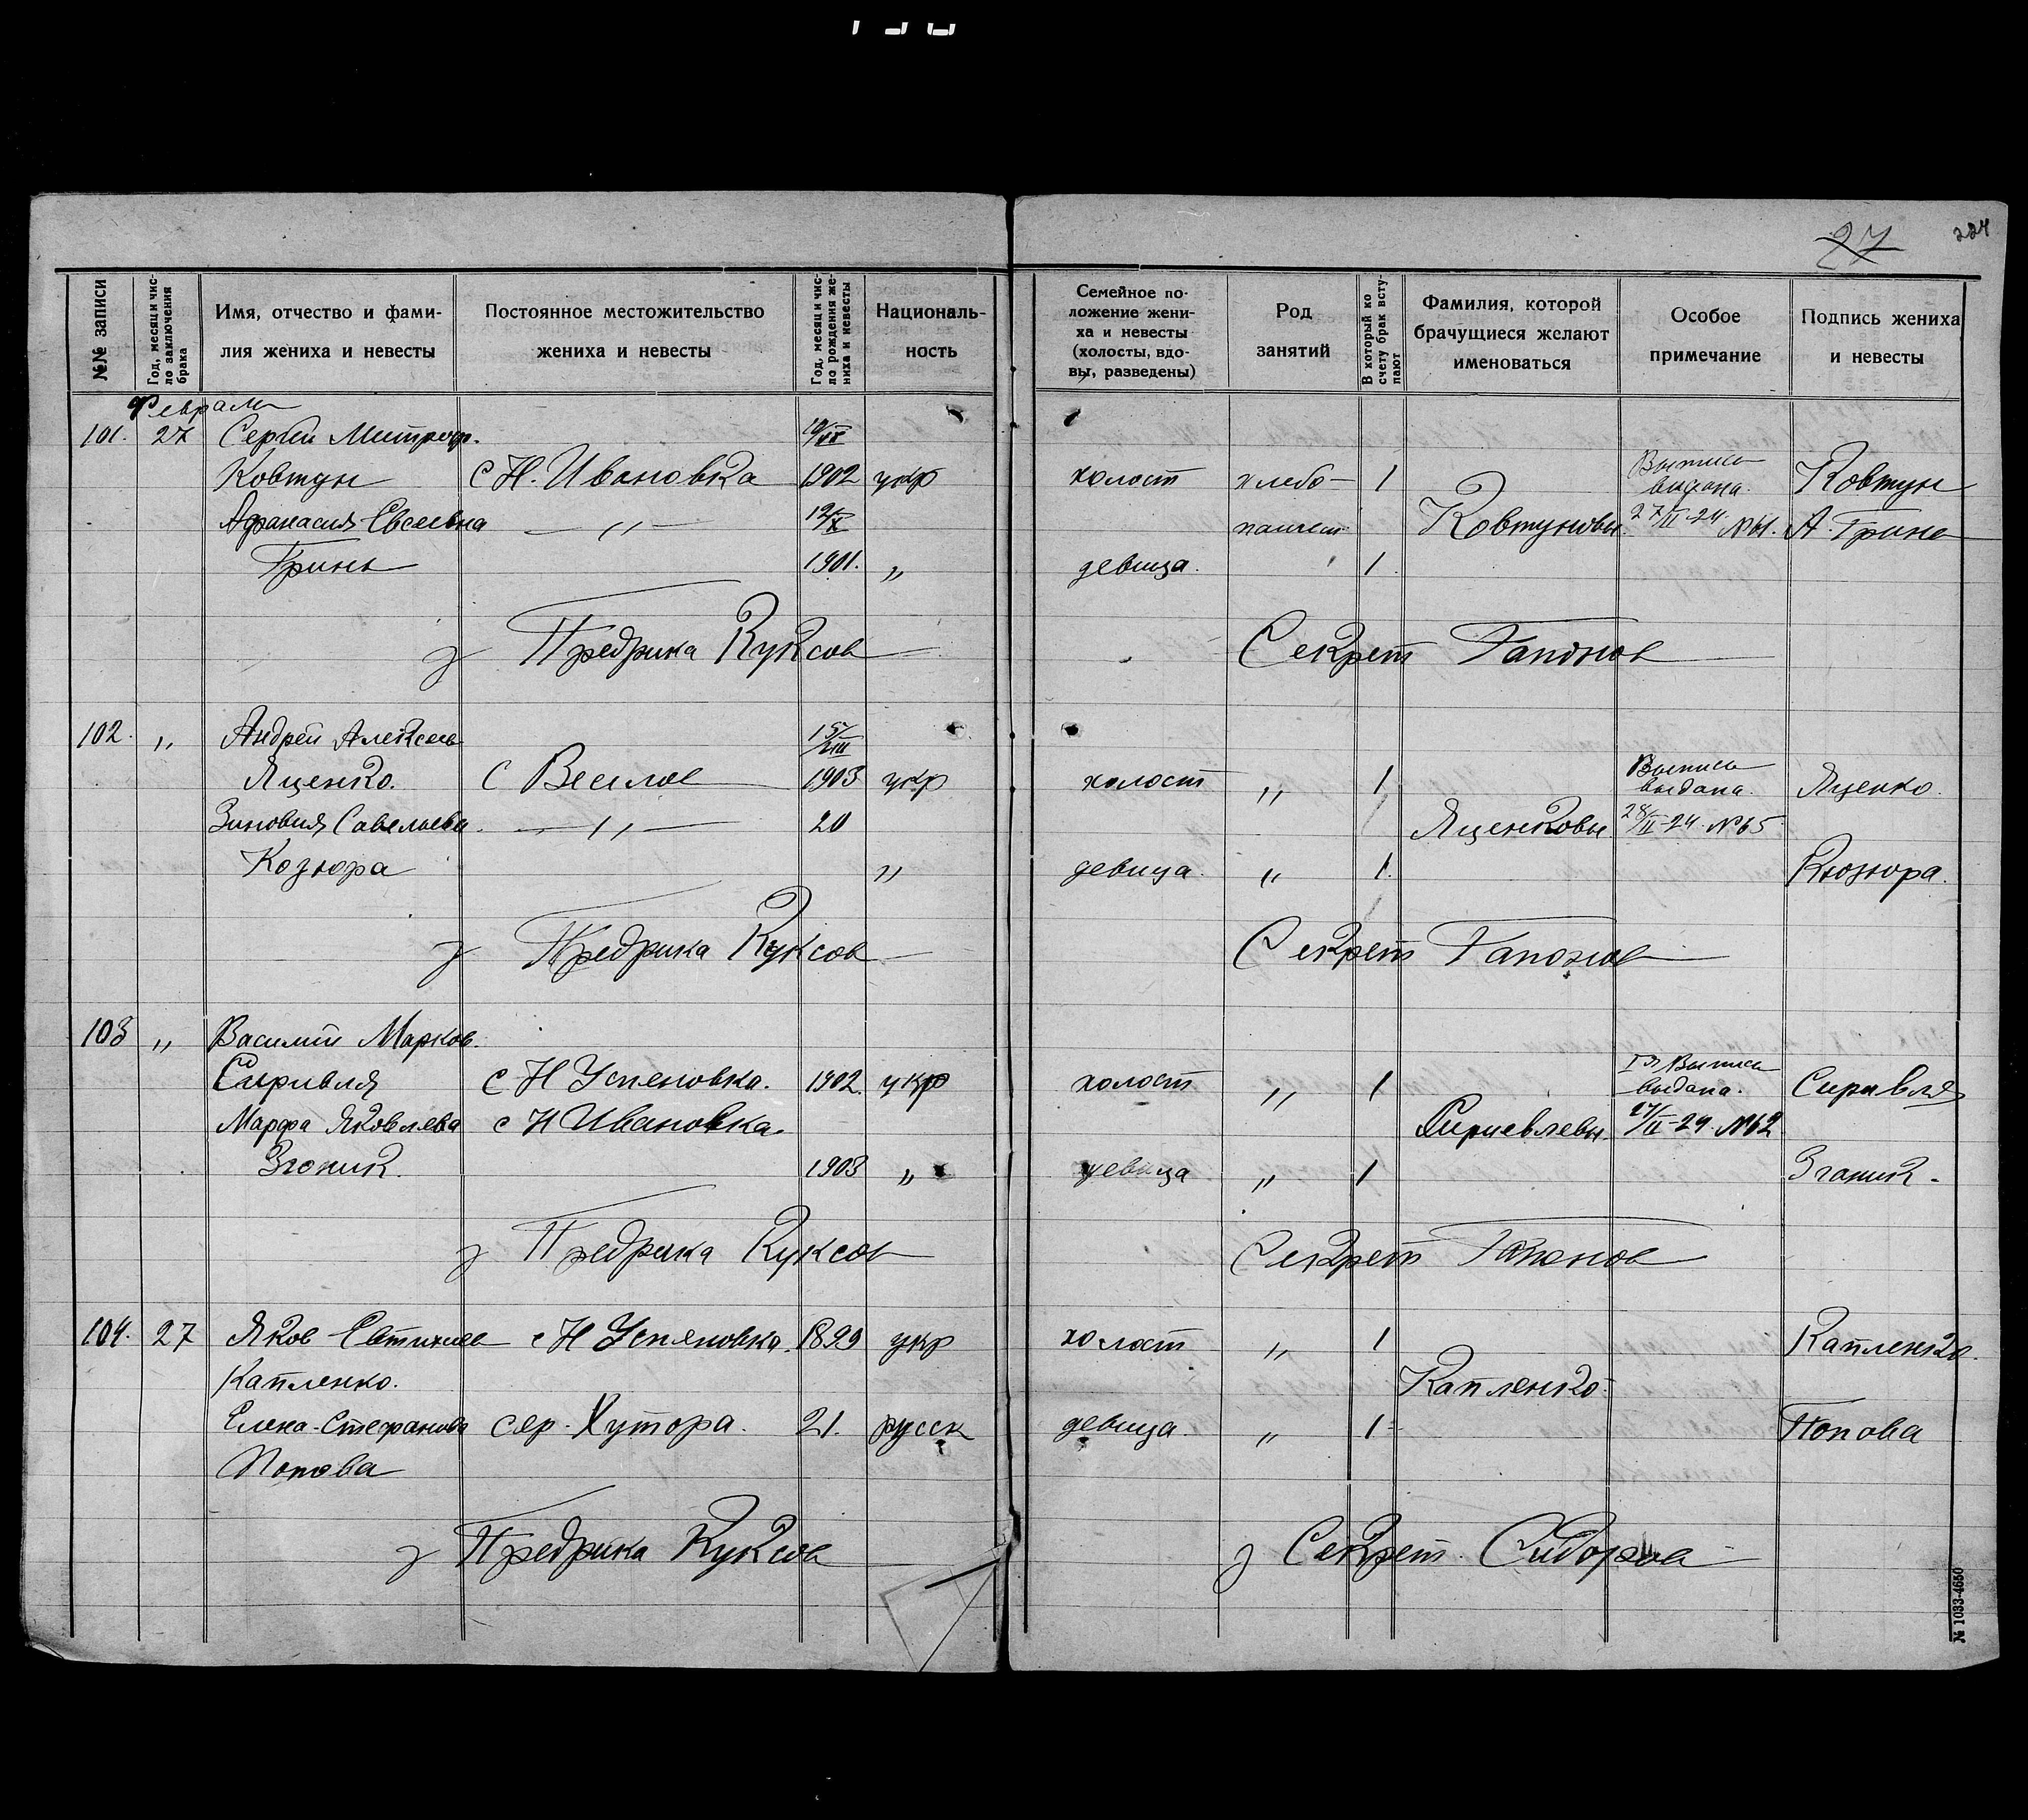 27 224
№№ записи
Год, месяц и число заключения брака
Имя, отчество и фами-
лия жениха и невесты
Постоянное местожительство
жениха и невесты
Год, месяц и чис-
ло рождения же-
ниха и невесты
Националь-
ность
Семейное по-
ложение жени-
ха и невесты
(холосты, вдо-
вы, разведены)
Род
занятий
В который ко
счету брак всту-
пают
Фамилия, которой
брачущиеся желают
именоваться
Особое
примечание
Подпись жениха
и невесты
Февраля
101. 27 Сергей Митроф.
Ковтун с Н. Ивановка 1902 укр холост хлебо- 1 Выпись выдана. Ковтун
Афанасия Евсеевна — „ — 12/X пашест Ковтуновы. 27/II-24 №61. А. Гринь
Гринь 1901. „ девица. 1
з Предрика Куксов Секрет Гапонов
102. „ Андрей Алексеев 15/VIII
Яценко. с Веселое 1903 укр холост „ 1 Выпись выдана. Яценко.
Зиновия Савельева. — „ — 20 Яценковы 28/II-24 №65
Козюра „ девица. „ 1. Козюра.
з Предрика Куксов Секрет Гапонов
103 „ Василий Марков.
Сыривля с Н Успеновка. 1902. укр холост „ 1 Выпись выдана. Сиривля
Марфа Яковлева с Н Ивановка. Сириевлевы. 27/II-24. №62
Згоник. 1903 „ девица „ 1 Згоник.
з Предрика Куксов Секрет Гапонов
104. 27 Яков Евтихиев с Н Успеновка. 1899 укр холост „ 1 Капленко.
Капленко. Капленко.
Елена Стефанова сер. Хутора. 21. русск девица. „ 1 Попова
Попова
з Предрика Куксов з Секрет. Сидоров
№ 1033-4650